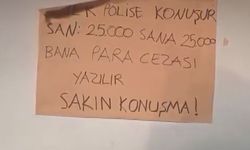 POLİSE KONUŞUR
SAN: 25.000 SANA 25.000
BANA PARA CEZASI
YAZILIR
SAKIN KONUŞMA!